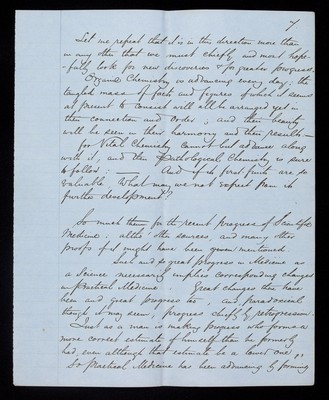 7
Let me repeat that it is in this direction more than
in any other that we must chiefly and most hope-
-fully look for new discoveries & for greater progress.
Organic Chemistry is advancing every day; the
tangled mass of facts and figures of which it seems
at present to consist will all be arranged yet in
their connection and order; and their beauty
will be seen in their harmony and their results—
for Vital Chemistry cannot but advance along
with it, and then Pathological Chemistry is sure
to follow; — And if its first fruits are so
valuable What may we not expect from its
further development?
So much then for the recent progress of Scientific
Medicine; altho' other sources and many other
proofs of it might have been given mentioned.
Such and so great progress in Medicine as
a Science necessarily implies corresponding changes
in Practical Medicine. Great changes there have
been and great progress too; and, paradoxical
though it may seem, progress chiefly by retrogression.
Just as a man is making progress who forms a
more correct estimate of himself than he formerly
had, even although that estimate be a lower one,
So Practical Medicine has been advancing by forming